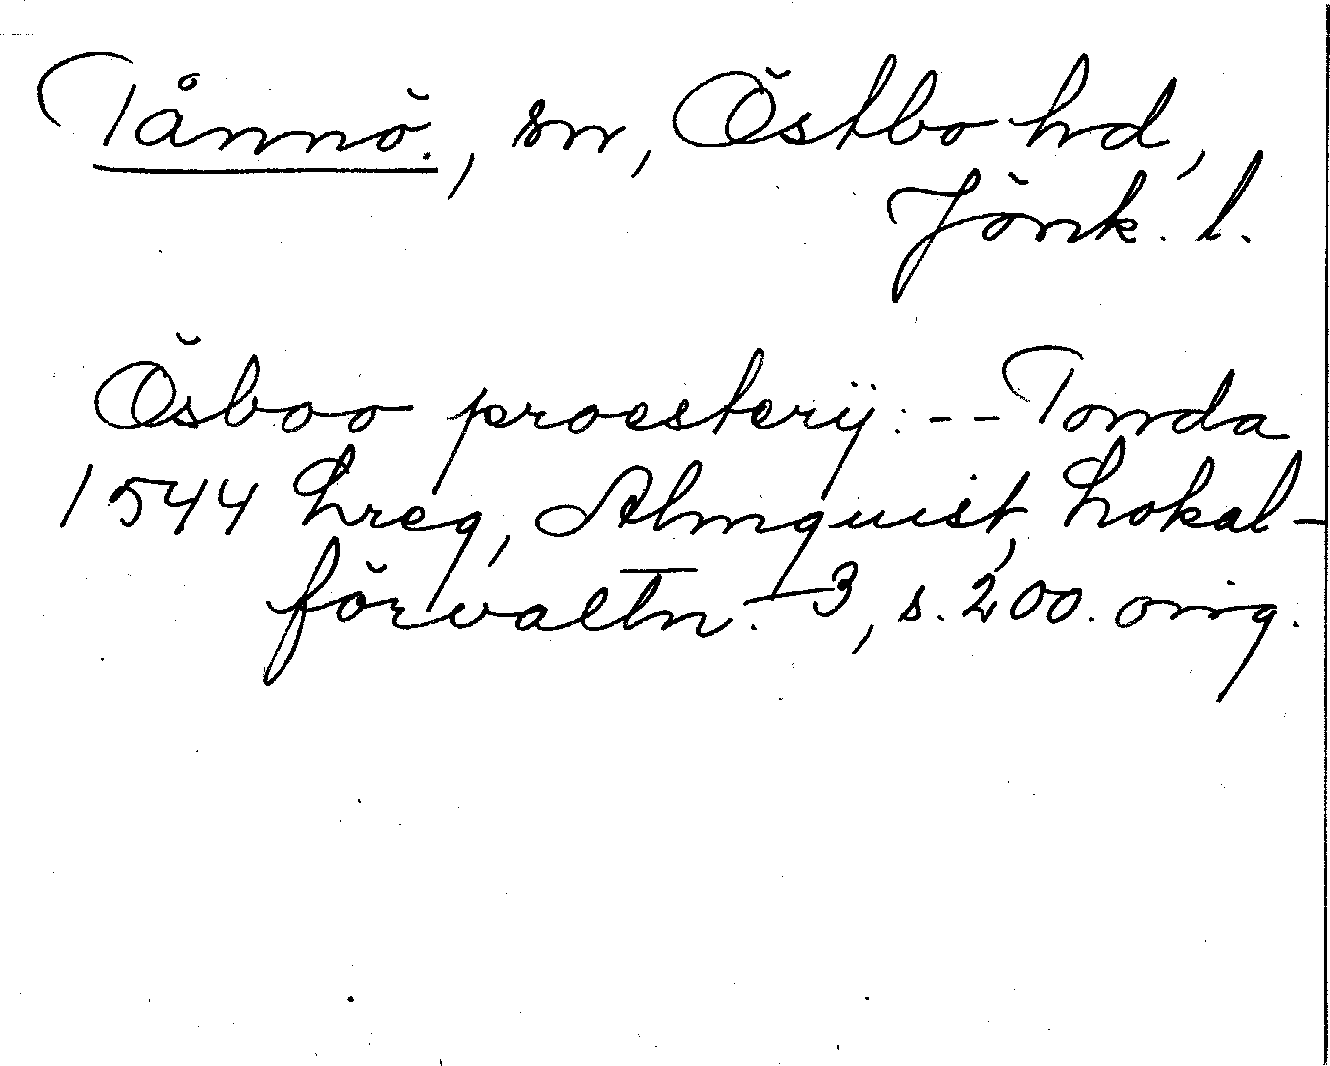 Tånnö., sn, Östbo hd,
Jönk. l.
Ösboo proesterij: -- Tonda
1544 Lreg, Almquist, Lokal-
förvaltn. 3, s. 200. orig.